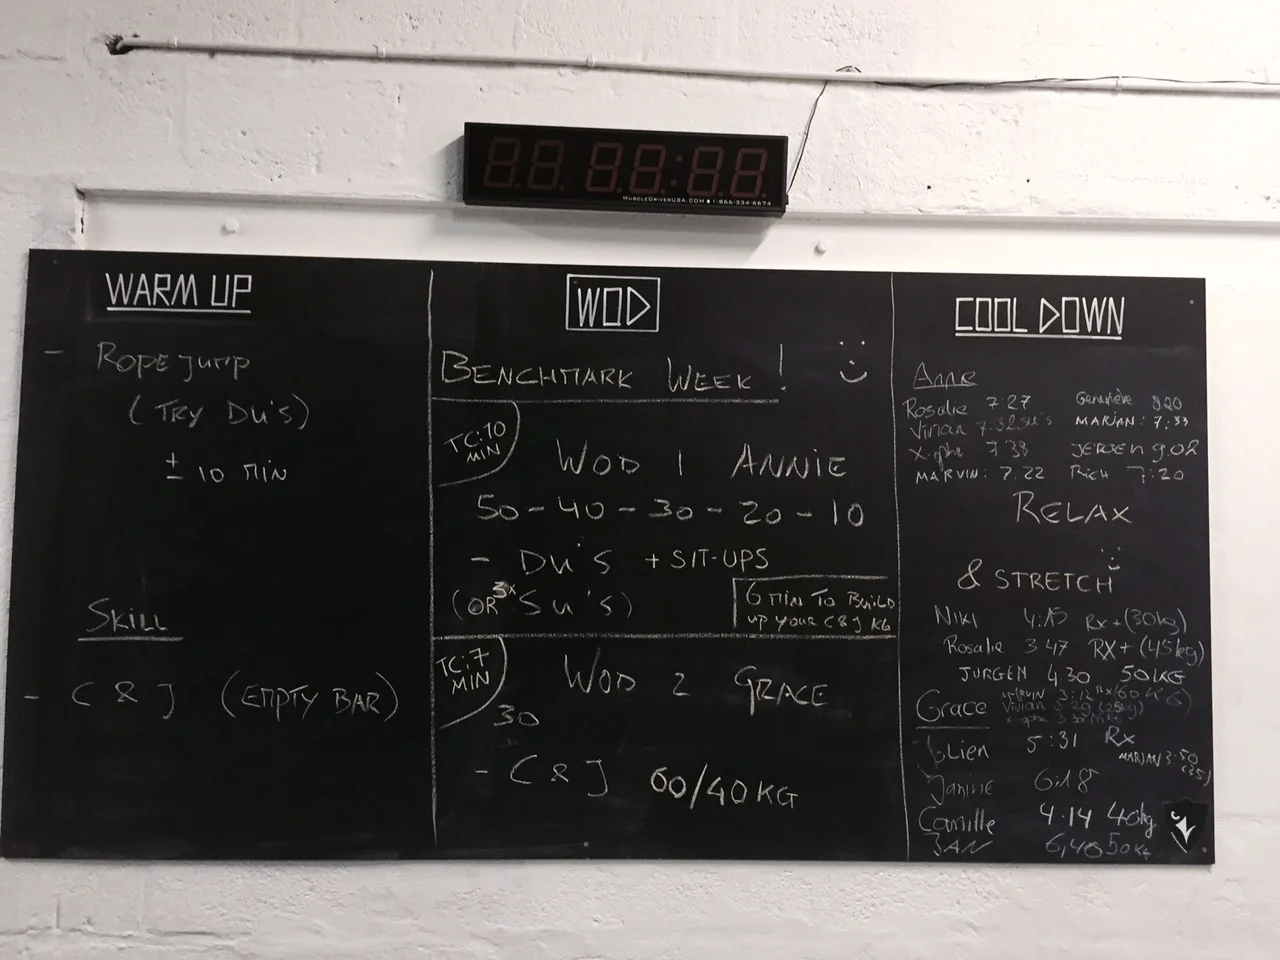 MUSCLEDRIVERUSA.COM ● 1-866-334-6674
WARM UP
- ROPE JUMP
(TRY DU'S)
± 10 MIN
SKILL
- C & J (EMPTY BAR)
WOD
BENCHMARK WEEK !
TC: 10
MIN
WOD 1 ANNIE
50 - 40 - 30 - 20 - 10
- DU'S + SIT-UPS
(OR 3x SU'S)
6 MIN TO BUILD
UP YOUR C & J KG
TC: 7
MIN
WOD 2 GRACE
30
- C & J 60/40 KG
COOL DOWN
Annie
Rosalie 7:27 Geneviève 8:20
Vivian 7:32 SU'S MARJAN: 7:33
7:38 JEROEN 9.02
MARVIN: 7.22 Rich 7:20
RELAX
& STRETCH
NIKI 4:15 RX + (30kg)
Rosalie 3:47 RX + (45kg)
JURGEN 4.30 50KG
MARVIN 3:12 RX/60 KG
Grace Vivian (25kg)
Jolien 5:31 Rx
MARJAN 3:50
(35)
Janine 6:18
Camille 4.14 40kg
JAN 6,40 50KG